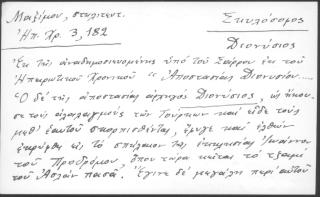 Μαξίμου, στηλιτευτ.
Ἠπ. Χρ. 3, 182
Σκυλόσοφος
Διονύσιος
Ἐκ τῆς ἀναδημοσιευομένης ὑπό τοῦ Σάρρου ἐκ τοῦ
Ἠπειρωτικοῦ Χρονικοῦ "Ἀποστασίας Διονυσίου.....
"Ὁ δέ τῆς ἀποστασίας ἀρχηγός Διονύσιος, ὡς ἤκου-
σε τούς ἀλαλαγμούς τῶν Τούρκων καί εἶδε τούς
μεθ' ἑαυτοῦ σκορπισθέντας, ἔφυγε καί ἐλθών
ἐκρύφθη εἰς τό σπήλαιον τῆς ἐκκλησίας Ἰωάννου
τοῦ Προδρόμου, ὅπου τώρα κεῖται τό τζαμί
τοῦ Ἀσλάν πασᾶ. Ἔγινε δέ μεγάλη περί αὐτοῦ